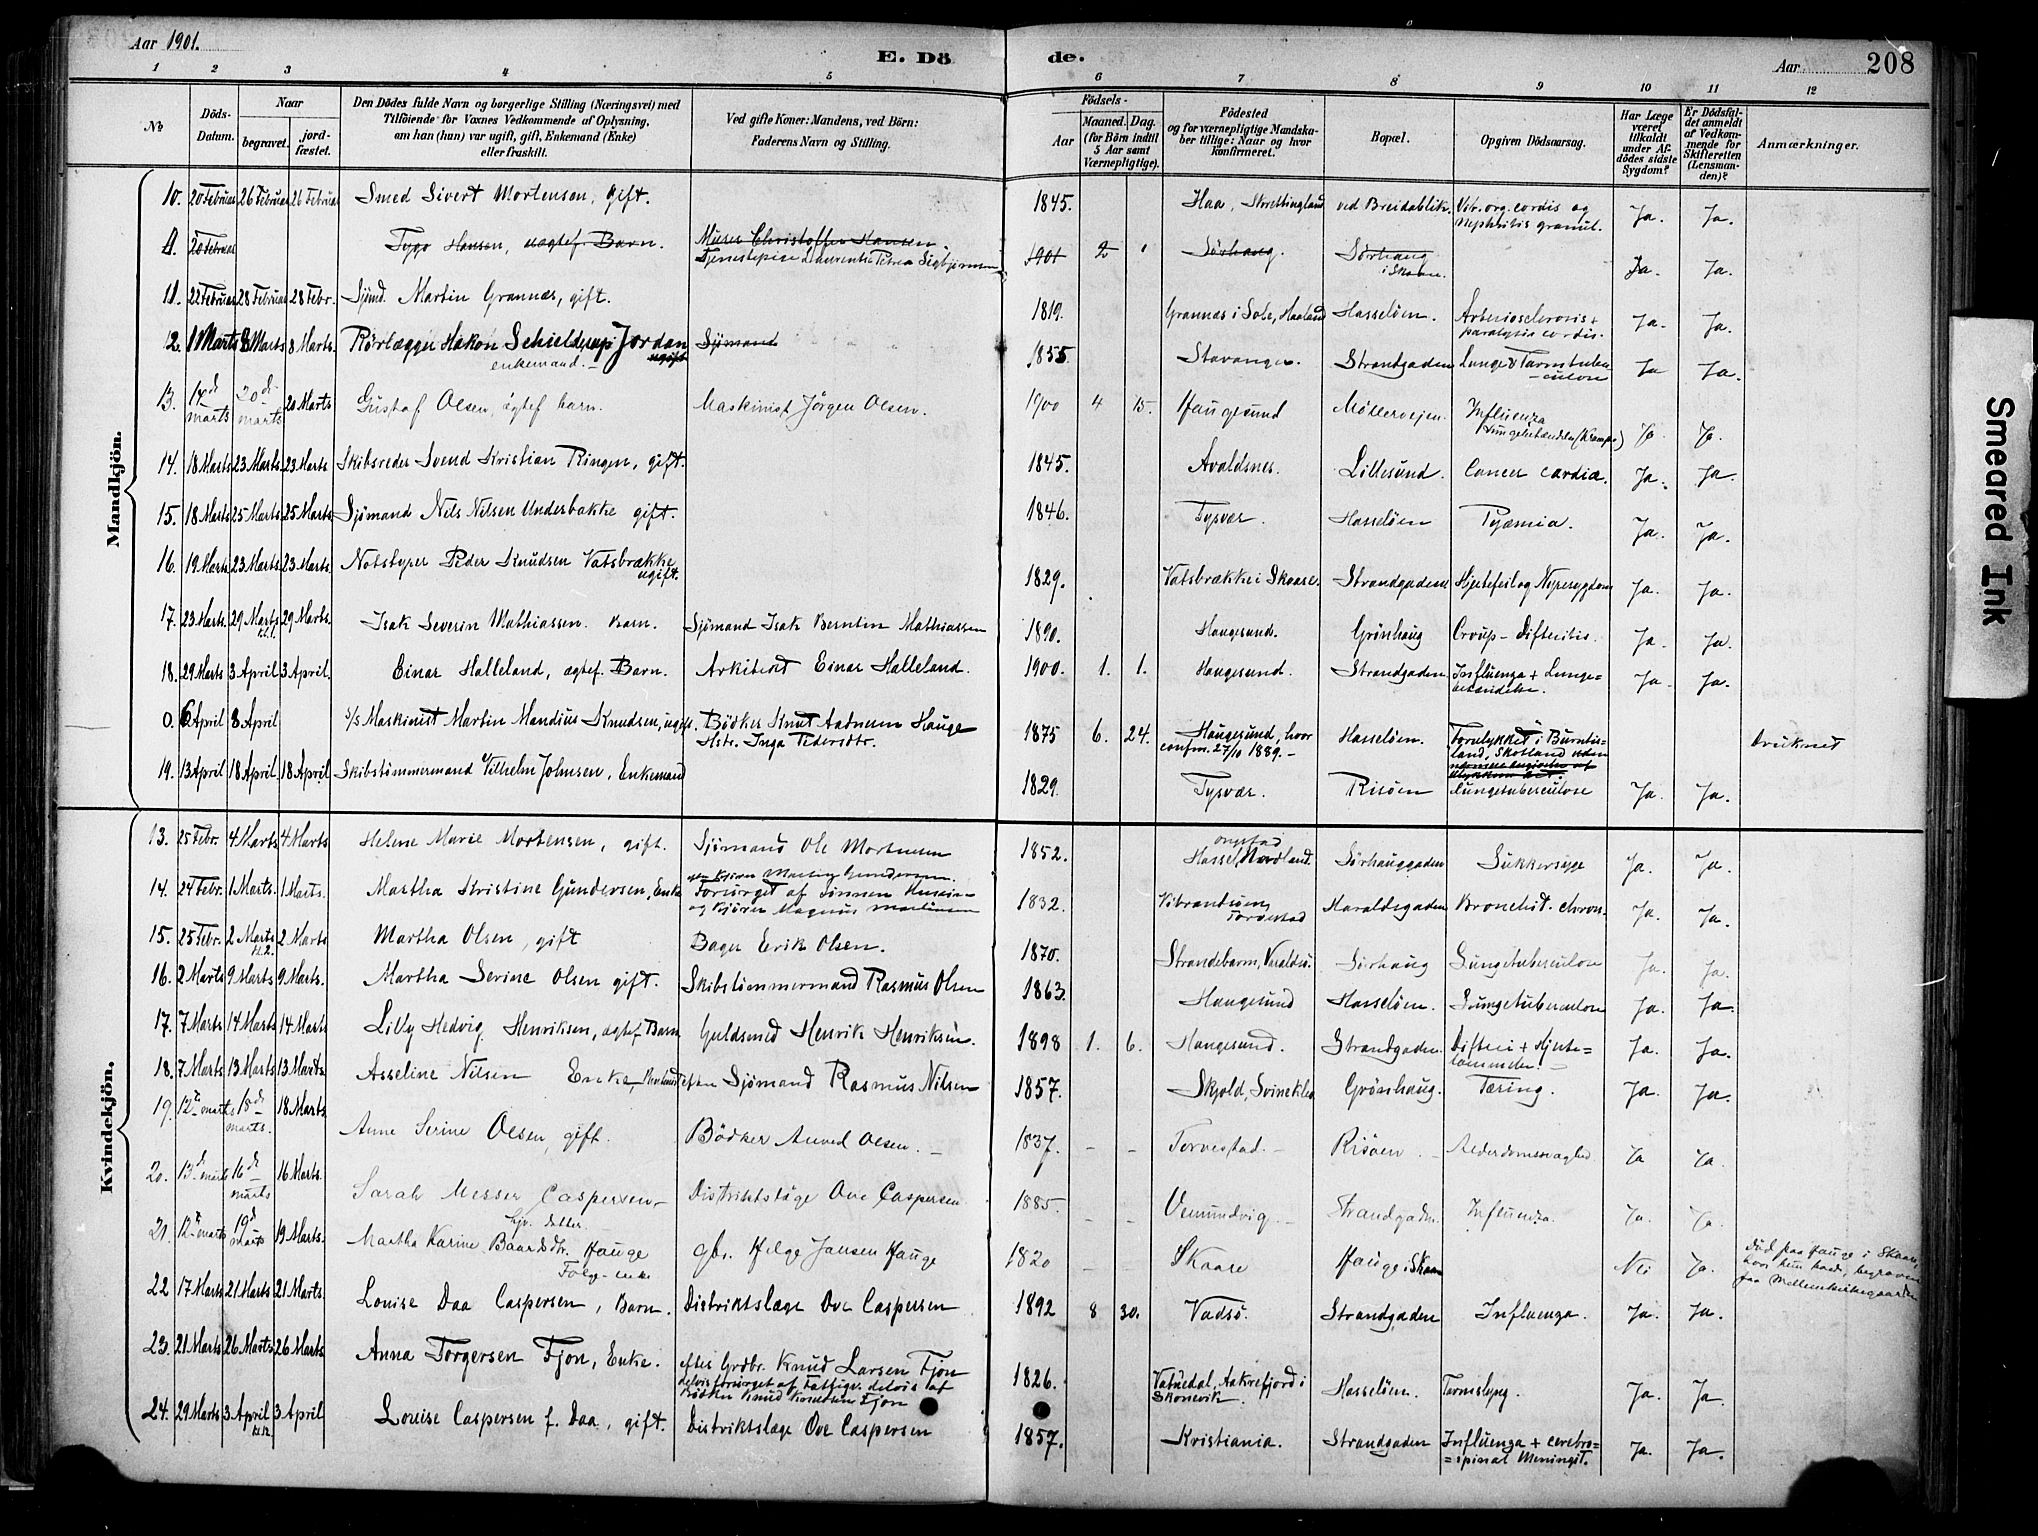 Aar 1901.
E. Dö
de.
Aar
208
1 2 3 4 5 6 7 8 9 10 11 12
No
Döds-Datum.
Naar
begravet.
jord-fæstet.
Den Dödes fulde Navn og borgerlige Stilling (Næringsvei) med
Tilföiende for Voxnes Vedkommende af Oplysning,
om han (hun) var ugift, gift, Enkemand (Enke)
eller fraskilt.
Ved gifte Koner: Mandens, ved Börn:
Faderens Navn og Stilling.
Födsels-
Aar
Maaned. Dag.
(for Börn indtil
5 Aar samt
Værnepligtige).
Födested
og for værnepligtige Mandska-
ber tillige: Naar og hvor
konfirmeret.
Bopæl.
Opgiven Dödsaarsag.
Har Læge
været
tilkaldt
under Af-
dödes sidste
Sygdom?
Er Dödsfal-
det anmeldt
af Vedkom-
mende for
Skifteretten
(Lensman-
den)?
Anmærkninger.
Mandkjön.
10. 20 Februar 26 Februar 26 Februar Smed Sivert Mortensen, gift. 1845. Haa, ved Breidablik. Vitr. org. cordis og
Nephritis granul. Ja. Ja.
20 Februar Tygo Hansen, uægtef. Barn. Christoffer Hansen.
Tjenestepige Laurentse Petrea Sigbjørnsen 1901 2 Sørhaug. Sørhaug
i Skaare. Ja. Ja.
11. 22 Februar 28 Februar 28 Febr. Sjømd. Martin Grannæs, gift. 1819. Grannæs i Sole, Haaland Hasseløen. Arteriosclerosis +
paralysis cordis. Ja. Ja.
12. 1 Marts 8 Marts 8 Marts. Rørlægger Hakon Schielderup Jordan
ugift
enkemand. Sjømand 1855. Stavanger. Strandgaden Lunge & Tarmtuber-
culose Ja Ja.
13. 14d marts 20d marts 20 Marts Gustaf Olsen, ægtef barn. Maskinist Jörgen Olsen. 1900 4 15. Haugesund Møllervejen. Influenza
Lungebetændelse (Krampe) Ja. Ja.
14. 18 Marts 23 Marts 23 Marts Skibsreder Svend Kristian Ringen, gift. 1845. Avaldsnes. Lillesund. Cancer cardia. Ja. Ja.
15. 18 Marts 25 Marts 25 Marts Sjömand Nils Nilsen Underbakke gift. 1846. Tysvær. Hasseløen Pyæmia. Ja. Ja.
16. 19 Marts 23 Marts 23 Marts. Notstyper Peder Knudsen Vatsbrække
ugift. 1829. Vatsbrække i Skaare. Strandgaden Hjertefeil og Nyresygdom Ja. Ja.
17. 23 Marts. 29 Marts
kl. 1. 29 Marts. Isak Severin Mathiassen. Barn. Sjømand Isak Berntin Mathiassen 1890. Haugesund. Grönhaug Croup-Difteritis. Ja. Ja.
18. 29 Marts 3 April 3 April. Einar Halleland, ægtef. Barn. Arkitekt Einar Halleland. 1900. 1. 1. Haugesund. Strandgaden Influenza + Lunge=
betændelse. Ja. Ja.
0. 6 April 8 April s/s Maskinist Martin Mandius Knudsen, ugift. Bödker Knut Aadnesen Hauge
Hstr. Inga Pedersdtr. 1875 6. 24. Haugesund, hvor
confirm. 27/10 1889.- Hasseløen. Forulykket i Burntis=
land, Skotland uden
nærmere angivelse af
druknet
19. 13 April 18 April 18 April Skibstömmermand Vilhelm Johnsen, Enkemand 1829. Tysvær. Risøen Lungetuberculose Ja. Ja.
Kvindekjön.
13. 25 Febr. 4 Marts 4 Marts Helene Marie Mortensen, gift. Sjømand Ole Mortensen 1852. Hassel, Nordland. Sørhauggaden Sukkersyge Ja. Ja.
14. 24 Febr. 1 Marts. 1 Marts. Martha Kristine Gundersen, Enke
Forsørget af Sønnen
og Magnus Martinsen 1832. Vibrandsøen,
Torvestad Haraldsgaden Bronchit. chron. Ja. Ja.
15. 25 Febr. 2 Marts
kl. 2. 2 Marts Martha Olsen, gift Bager Erik Olsen. 1870. Strandebarm, Varaldsö. Sørhaug Lungetuberculose Ja. Ja.
16. 2 Marts 9 Marts 9 Marts. Martha Serine Olsen gift. Skibstömmermand Rasmus Olsen 1863. Haugesund Hasseløen. Lungetuberculose Ja. Ja.
17. 7 Marts 14 Marts 14 Marts Lilly Hedvig Henriksen, ægtef. Barn Guldsmed Henrik Henriksen. 1898 1. 6. Haugesund. Strandgaden. Difteri + Hjerte=
lammelse. Ja. Ja.
18. 7 Marts 13 Marts 13 Marts. Asseline Nilsen Enke, efter Sjømand Rasmus Nilsen 1857. Skjold, Grønhaug. Tæring. Ja. Ja.
19. 12te marts 18d marts. 18 Marts Anne Serine Olsen, gift. Bödker Anved Olsen. 1837. - - Torvestad. Risöen Alderdomssvaghed. Ja Ja.
20. 13d marts 16d marts 16 Marts. Sarah Messer Caspersen Distriktslæge Ove Caspersen 1885. - - Vemundvig. Strandgaden. Influenza. Ja. Ja.
21. 12te marts 19d marts 19 Marts. Martha Karine Baardsdtr. Hauge
Folge-enke gbr. Helge Jansen Hauge 1820 - - Skaare Hauge i Skaare Nei Ja. Død paa Hauge i Skaare,
hvor hun boede, begraven
paa Mellemkirkegaarden
22 17 Marts 21 Marts 21 Marts. Louise Daa Caspersen, Barn. Distriktslæge Ove Caspersen 1892 8 30. Vadsö. Strandgaden Influenza. Ja. Ja.
23. 21 Marts 26 Marts 26 Marts. Anna Torgersen Fjon, Enke. efter Grdbr. Knud Larsen Fjon
delvis forsørget af Fattigv. delvis af
Bødker Knud Knudsen Fjon 1826. Vatnedal, Aakrefjord i
Skonevik. Hasseløen. Ja. Ja.
24. 29 Marts 3 April 3 April Louise Caspersen f. Daa, gift. Distriktslæge Ove Caspersen 1857. Kristiania. Strandgaden Influenza + cerebro=
=spinal Meningit. Ja. Ja.
Smeared Ink